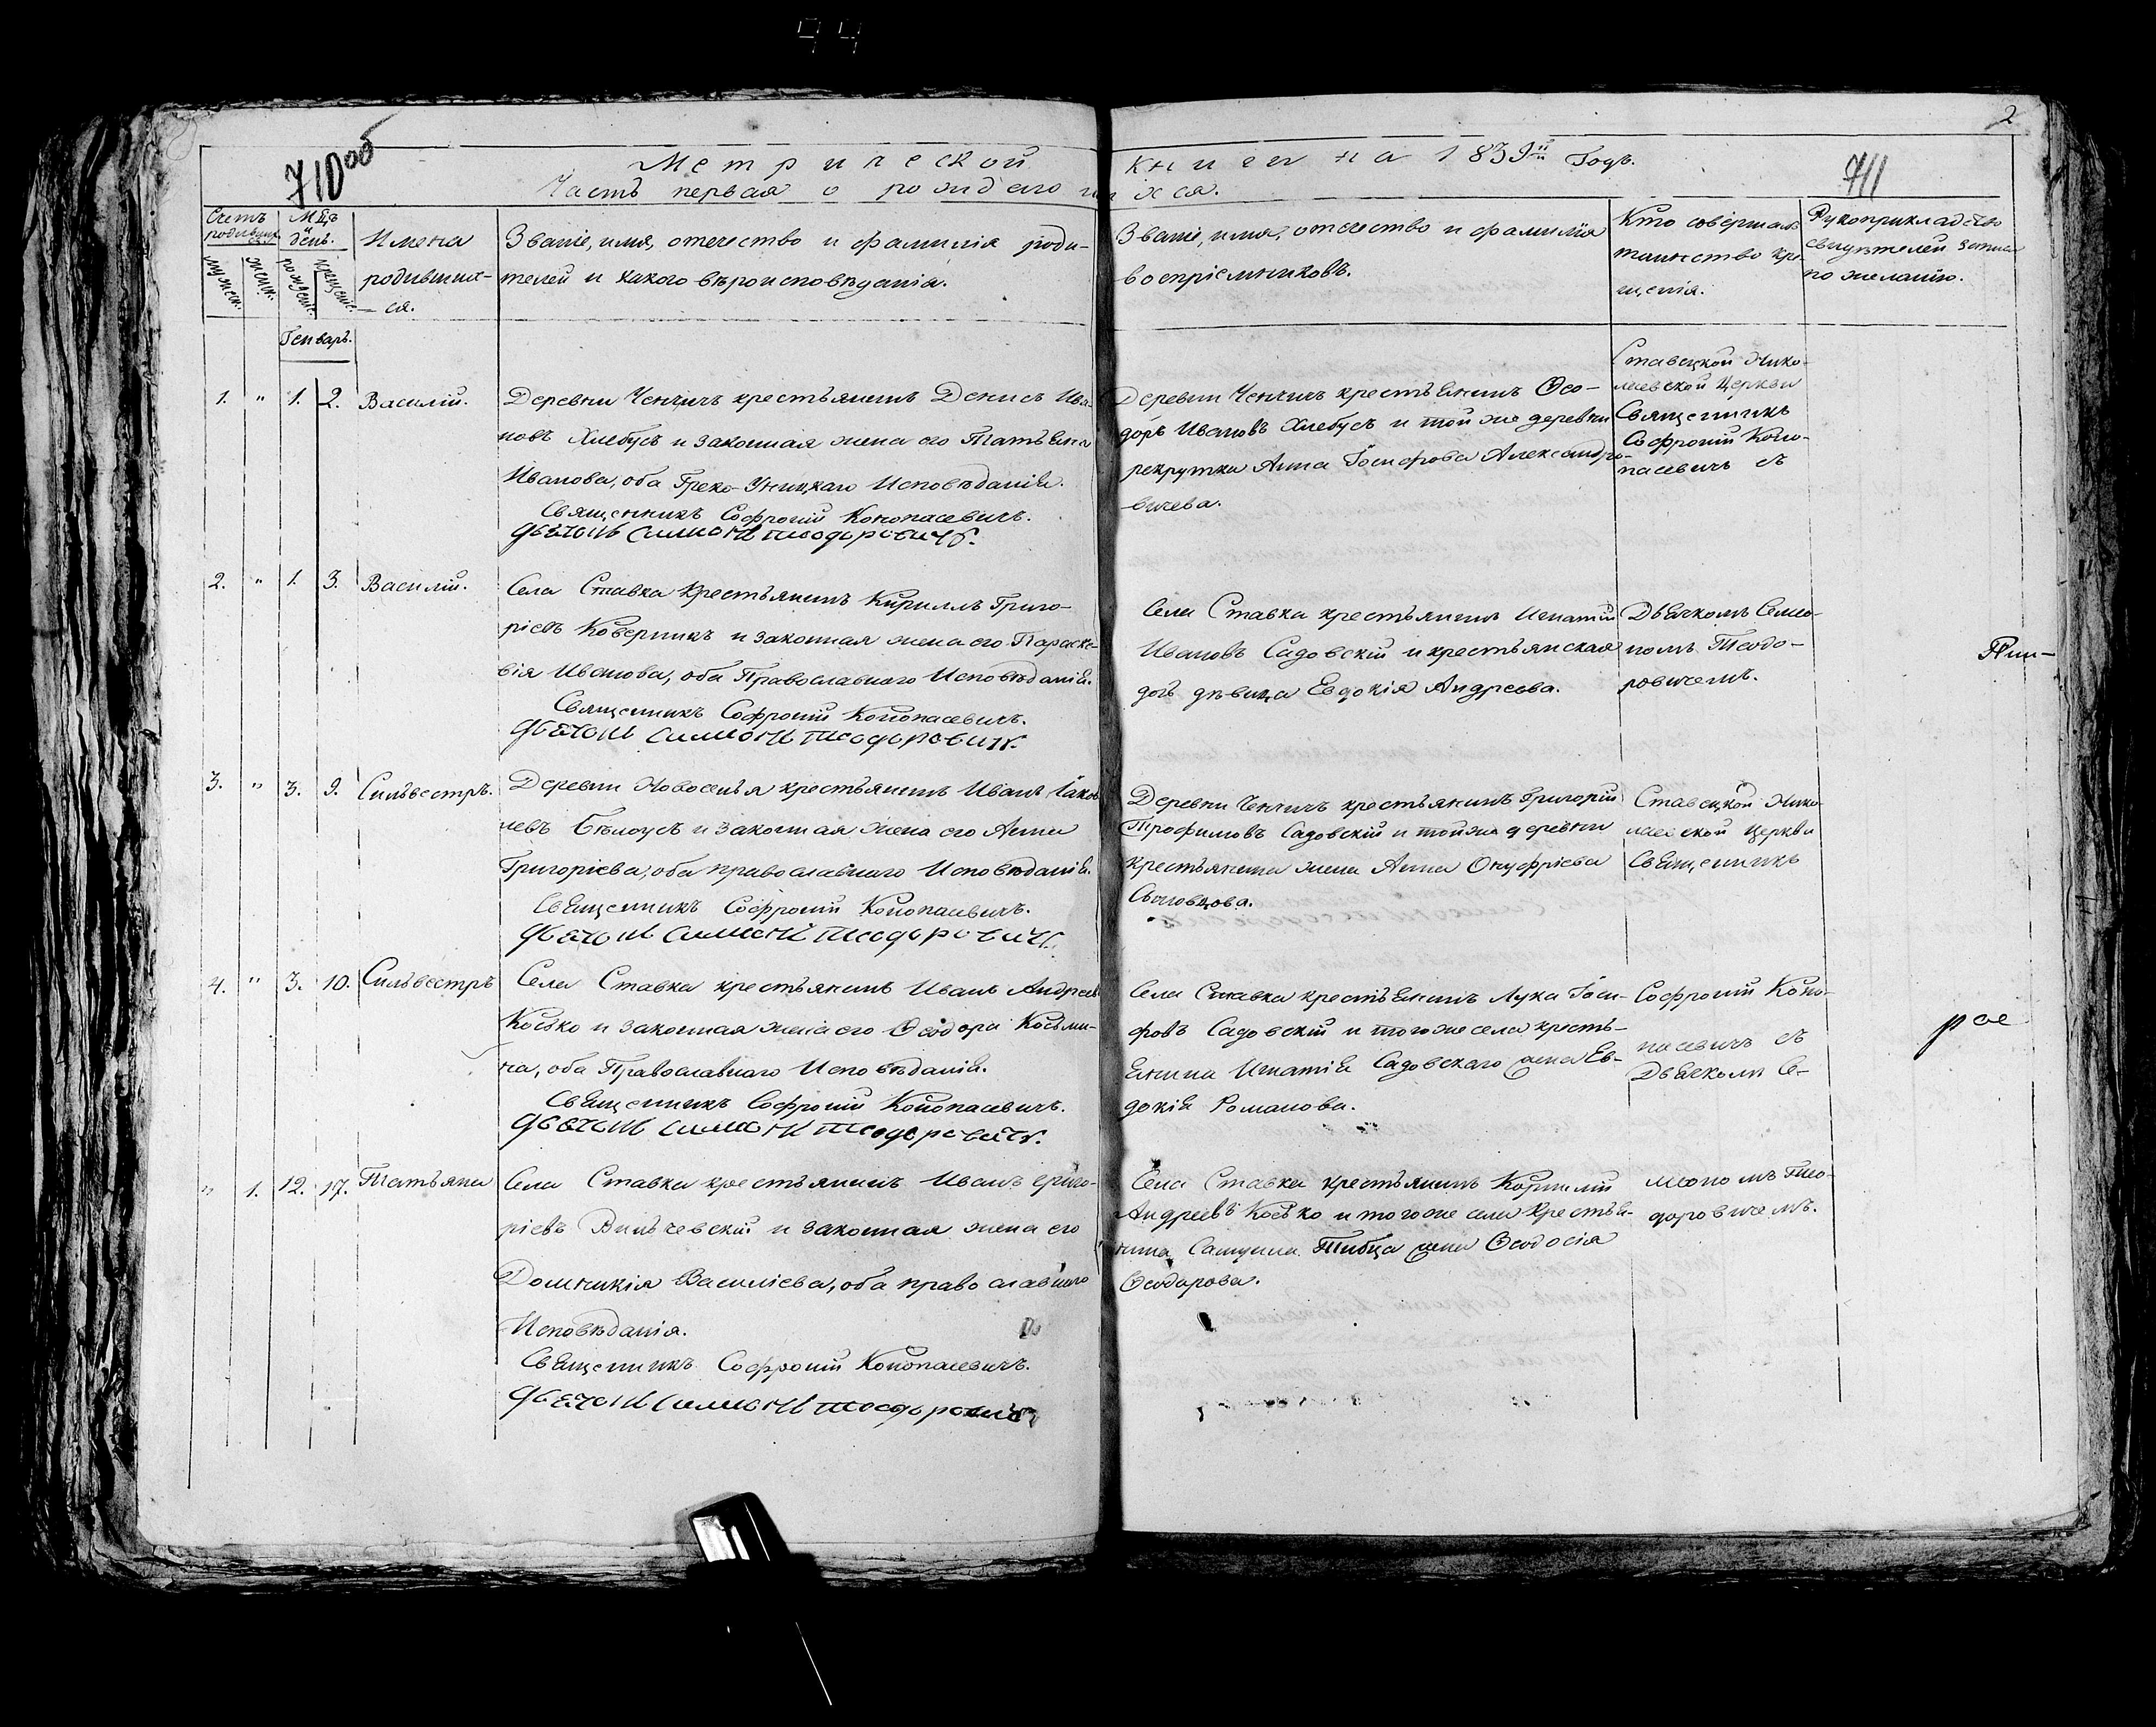 44
2
710об
711
Метрической книги на 1839й Годъ.
Часть первая о рождающихся.
Счетъ родивших ся.
Мѣц. и день.
мужск.
женск.
рожденіе.
крещеніе.
Имена
родивших-
ся.
Званіе, имя, отечество и фамилія роди-
телей и какого вѣроисповѣданія.
Званіе, имя, отечество и фамилія
воспріемниковъ.
Кто совершалъ
таинство кре-
щенія.
Рукоприкладство
свидѣтелей записи
по желанію.
Генваръ.
1. " 1. 2. Василій.
Деревни Ченчичъ крестьянинъ Денисъ Ива-
новъ Хлебусъ и законная жена его Татьяна
Иванова, оба Греко-Уницкаго Исповѣданія.
Священникъ Софроній Конопасевичъ.
Дьячокъ Симонъ Теодоровичъ.
Деревни Ченчичъ крестьянинъ Ѳео-
доръ Ивановъ Хлебусъ и той же деревни
рекрутка Анна Іосифова Александро-
вичева.
Ставецкой Нико-
лаевской Церкви
Священникъ
Софроній Коно-
пасевичъ съ
2. " 1. 3. Василій.
Села Ставка Крестьянинъ Кириллъ Григо-
ріевъ Коверникъ и законная жена его Параске-
вія Иванова, оба Православнаго Исповѣданія.
Священникъ Софроній Конопасевичъ.
Дьячокъ Симонъ Теодоровичъ.
Села Ставка крестьянинъ Игнатій
Ивановъ Садовскій и крестьянская
дочь дѣвица Евдокія Андреева.
Дьячкомъ Симо-
номъ Теодо-
ровичемъ.
Пин-
3. " 3. 9. Сильвестръ.
Деревни Новоселья крестьянинъ Иванъ Іаков
левъ Бѣлоусъ и законная жена его Анна
Григоріева, оба православнаго Исповѣданія.
Священникъ Софроній Конопасевичъ.
Дьячокъ Симонъ Теодоровичъ.
Деревни Ченчичъ крестьянинъ Григорій
Трофимовъ Садовскій и той же деревни
крестьянина жена Анна Онуфріева
Ставецкой Нико-
лаевской Церкви
Священникъ
4. " 3. 10. Сильвестръ
Села Ставка крестьянинъ Иванъ Андреев
Косько и законная жена его Ѳеодора Косьми-
на, оба Православнаго Исповѣданія.
Священникъ Софроній Конопасевичъ.
Дьячокъ Симонъ Теодоровичъ.
Села Ставка крестьянинъ Лука Іоси-
фовъ Садовскій и того же села кресть-
янина Игнатія Садовскаго жена Ев-
докія Романова.
Софроній Коно-
пасевичъ съ
Дьячкомъ Си-
рое
" 1. 12. 17. Татьяна
Села Ставка крестьянинъ Иванъ Григо-
ріевъ Вильчевскій и законная жена его
Домникія Василіева, оба православнаго
Исповѣданія.
Священникъ Софроній Конопасевичъ.
Дьячокъ Симонъ Теодоровичъ
Села Ставка крестьянинъ Корнилій
Андреевъ Косько и того же села крестья-
нина жена Ѳеодосія
Ѳеодорова.
мономъ Тео-
доровичемъ.